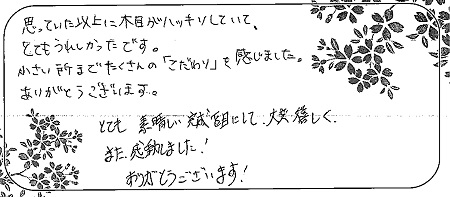 思っていた以上に木目がハッキリしていて、
とてもうれしかったです。
小さい所までたくさんの「こだわり」を感じました。
ありがとうございます。
とても 素晴しい 大変嬉しく、
また、感動しました！
ありがとうございます！